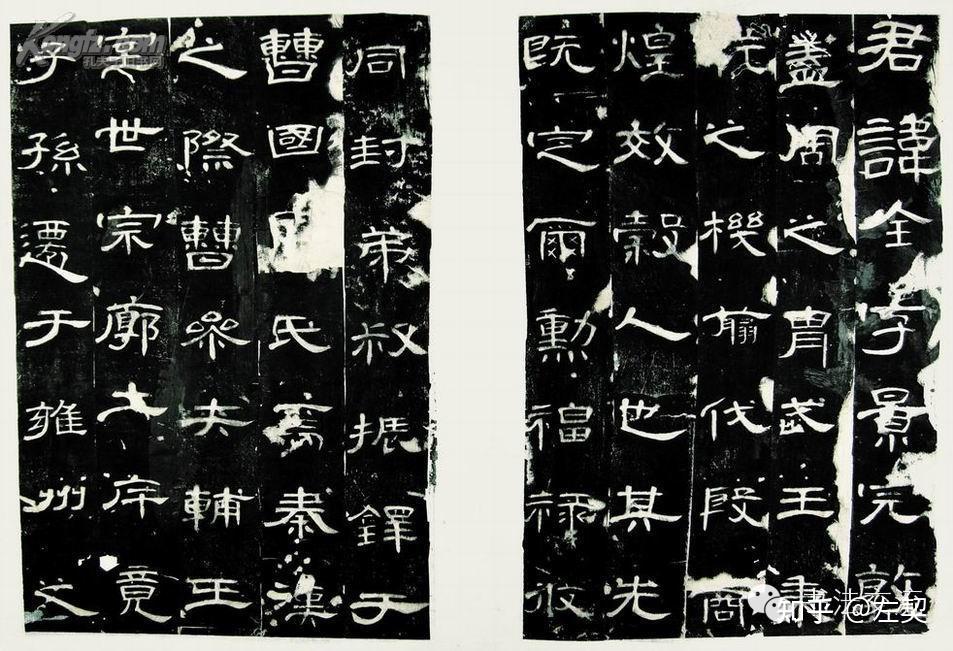 君諱全字景完敦
蓋周之胄武王秉
乾之機翦伐殷商
煌效穀人也其先
既定爾勳福祿攸
同封弟叔振鐸于
曹國因氏焉秦漢
之際曹參夾輔王
室世宗廓土斥竟
子孫遷于雍州之
Kongfz.com
孔夫子旧书网
知乎 @左契